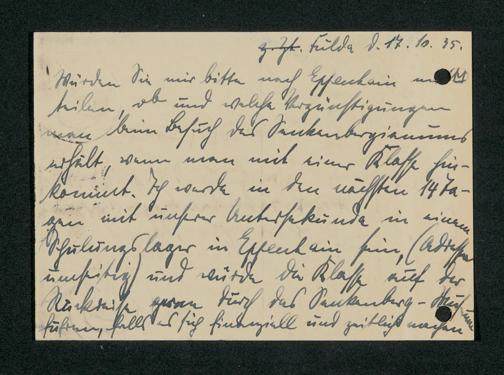 z. Zt. Fulda d. 17. 10. 35.
Würden Sie mir bitte nach Eppenhain mit
teilen, ob und welche Vergünstigungen
man beim Besuch des Senkenbergianums
erhält, wenn man mit einer Klasse hin-
kommt. Ich werde in den nächsten 14 Ta-
gen mit unserer Untersekunda in einem
Schulungslager in Eppenhain sein, (Adresse
umseitig) und würde die Klasse auf der
Rückreise gern durch das Senkenberg-Museum
führen, falls es sich finanziell und zeitlich machen